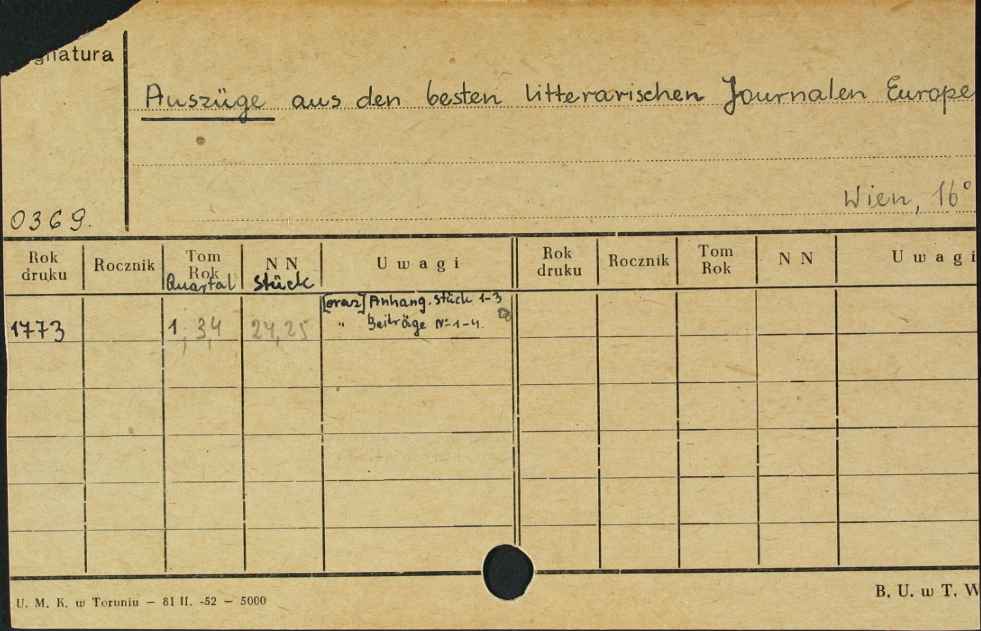 gnatura
Auszüge aus den besten litterarischen Journalen Europe
Wien, 16°
0369.
Rok druku Rocznik Tom Rok N N Uwagi Rok druku Rocznik Tom Rok N N Uwagi
Quartal Stück
[oraz] Anhang. Stück 1-3
1773 1, 3,4 24,25 " Beiträge No 1-4.
U. M. K. w Toruniu — 81 II. -52 — 5000
B. U. w T. W